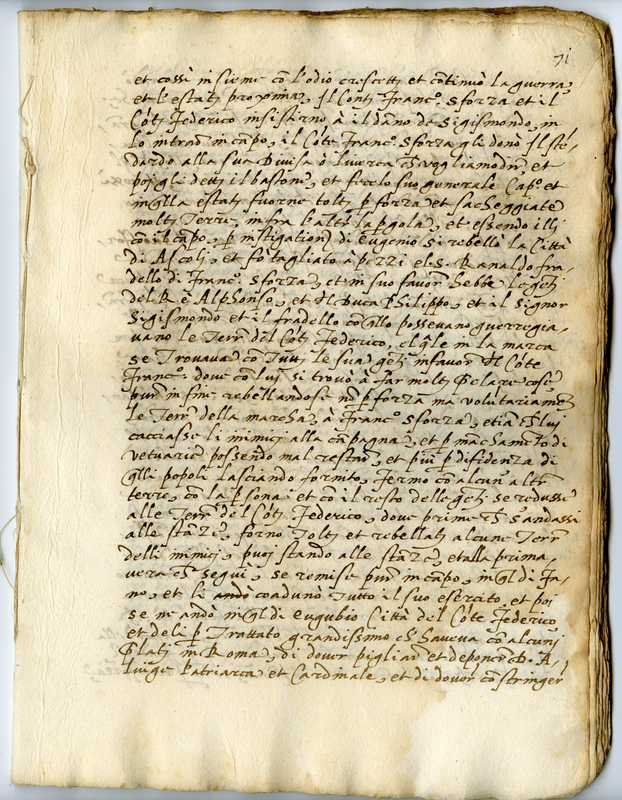 71
et cossì insieme cõ l'odio crescetti et cõtinuò la guerra,
et l'estati proxima, Il Conti Franc.º Sforza et il
Cõti Federico insisterno à il dãno de Sigismondo, in
lo intrad' in cãpo, il Cõte Franc.º Sforza gli donò Il stẽ-
dardo alla sua Divisa ò livrea et
poi gli detti il bastone, et fecelo suo generale Cap.º et
in q̃lla estati fuorne tolti p forza et sacheggiate
molti Terre, in fra l'altre la pgola, et essendo
cõ il cãpo, p instigation di Eugenio si rebellò la Città
di Ascoli, et fò tagliato à pezzi el S. Ranaldo fra-
dello di Franc.º Sforza, et in suo favor hebbe le gẽti
del Rè Alphonso, et Il Duca Philippo, et il Signor
Sigismondo et il fradello cõ q̃llo possevano guerregia-
vano le Terr' del Cõti Federico, el q̃le in la marca
se trovava cõ tutti le sua gẽti in favor Il Cõte
Franc.º dove cõ lui si trovò à far molti P̃clare cose
pur' in fine rebellãdose nõ p forza ma volutariamẽ
le Terr' della marcha, à Franc.º Sforza, etiã lui
cacciasse li inimici alla cãpagna, et p mãchamẽto di
vetuarie possendo mal crestar, et più p difidenza di
q̃lli popoli lasciando fornito, Fermo cõ alcun' altr'
terre, cõ la psona et cõ il resto delle gẽti se redusse
alle Terr' del Cõti Federico, dove prime ch' s'andassi
alle stãze, forno tolti et rebellati alcune Terr'
delli inimici, puoi stando alle stãze, et alla prima-
vera ch' seguì, se remise pur' in cãpo, in q̃l di Fa-
no, et li andò coadunò tutto il suo esercito, et poi
se ne andò in q̃l di Eugubio Città del Cõte Federico
et de lì p Trattato grandissimo ch' haveva cõ alcuni
P̃lati in Roma, di dover pigliar' et deponer A-
luige Patriarca et Cardinale, et di dover cõstringer